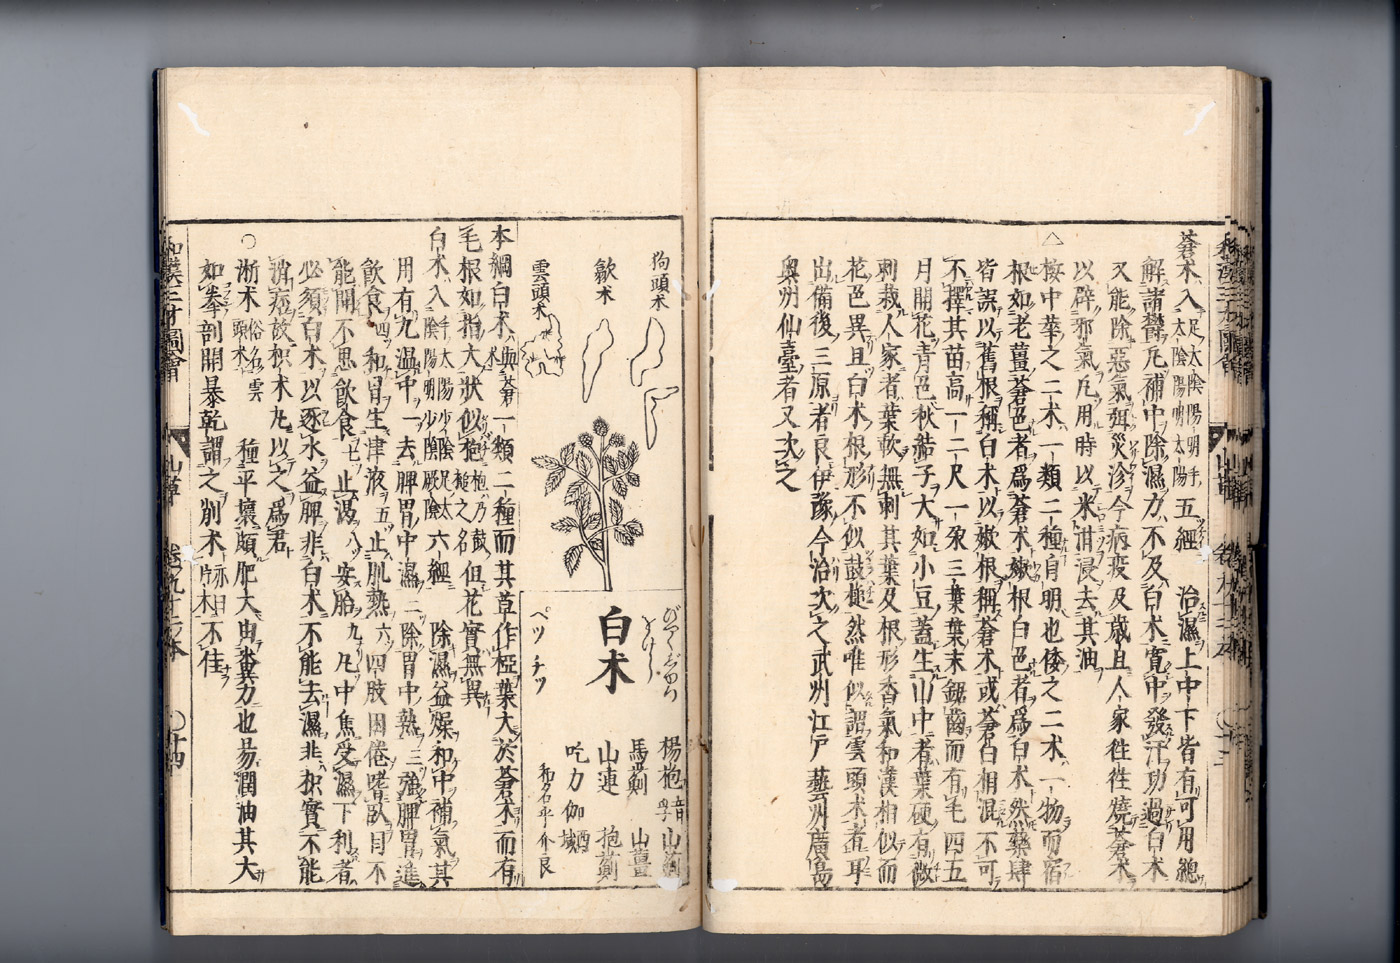 蒼朮入足太陰陽明手太陰陽明太陽五經 治濕上中下皆有可用總
解諸鬱凡補中除濕力不及白朮寬中發汗功過白朮
又能除惡氣弭災沴今病疫及歲旦人家徃徃燒蒼朮
以辟邪氣凡用時以米泔浸去其油
△按中華之二朮一類二種自明也倭之二朮一物而宿
根如老薑蒼色者爲蒼朮嫩根白色者爲白朮然藥肆
皆誤以舊根稱白朮以嫩根稱蒼朮或蒼白相混不可
不擇其苗高一二尺一朶三葉葉末鋸齒而有毛四五
月開花青色秋結子大如小豆蓋生山中者葉硬有微
刺栽人家者葉軟無刺其葉及根形香氣和漢相似而
花色異且白朮根形不似鼓槌然唯似謂雲頭朮者耳
出備後三原者良伊豫今治次之武州江戸藝州廣島
奥州仙臺者又次之
狗頭朮
歙朮
雲頭朮
白朮
ペッ チッ
楊枹音孚 山薊
馬薊 山薑
山連 抱薊
吃力伽
和名乎介良
本綱白朮與蒼朮一類二種而其草作椏葉大於蒼朮而有
毛根如指大狀似枹枹乃鼓槌之名但花實無異
白朮入手太陽少陰足太陰陽明少陰厥陰六經 除濕益燥和中補氣其
用有九温中一去脾胃中濕二除胃中熱三強脾胃進
飲食四和胃生津液五止肌熱六四肢困倦嗜臥目不
能開不思飲食七止渴八安胎九凡中焦受濕下利者
必須白朮以逐水益脾非白朮不能去濕非枳實不能
消痞故枳朮丸以之爲君
○淅朮俗名雲頭朮 種平壤頗肥大由糞力也易潤油其大
如拳剖開暴乾謂之削朮亦曰片朮不佳
和漢三才圖會 山草 卷九十二本 ○十四